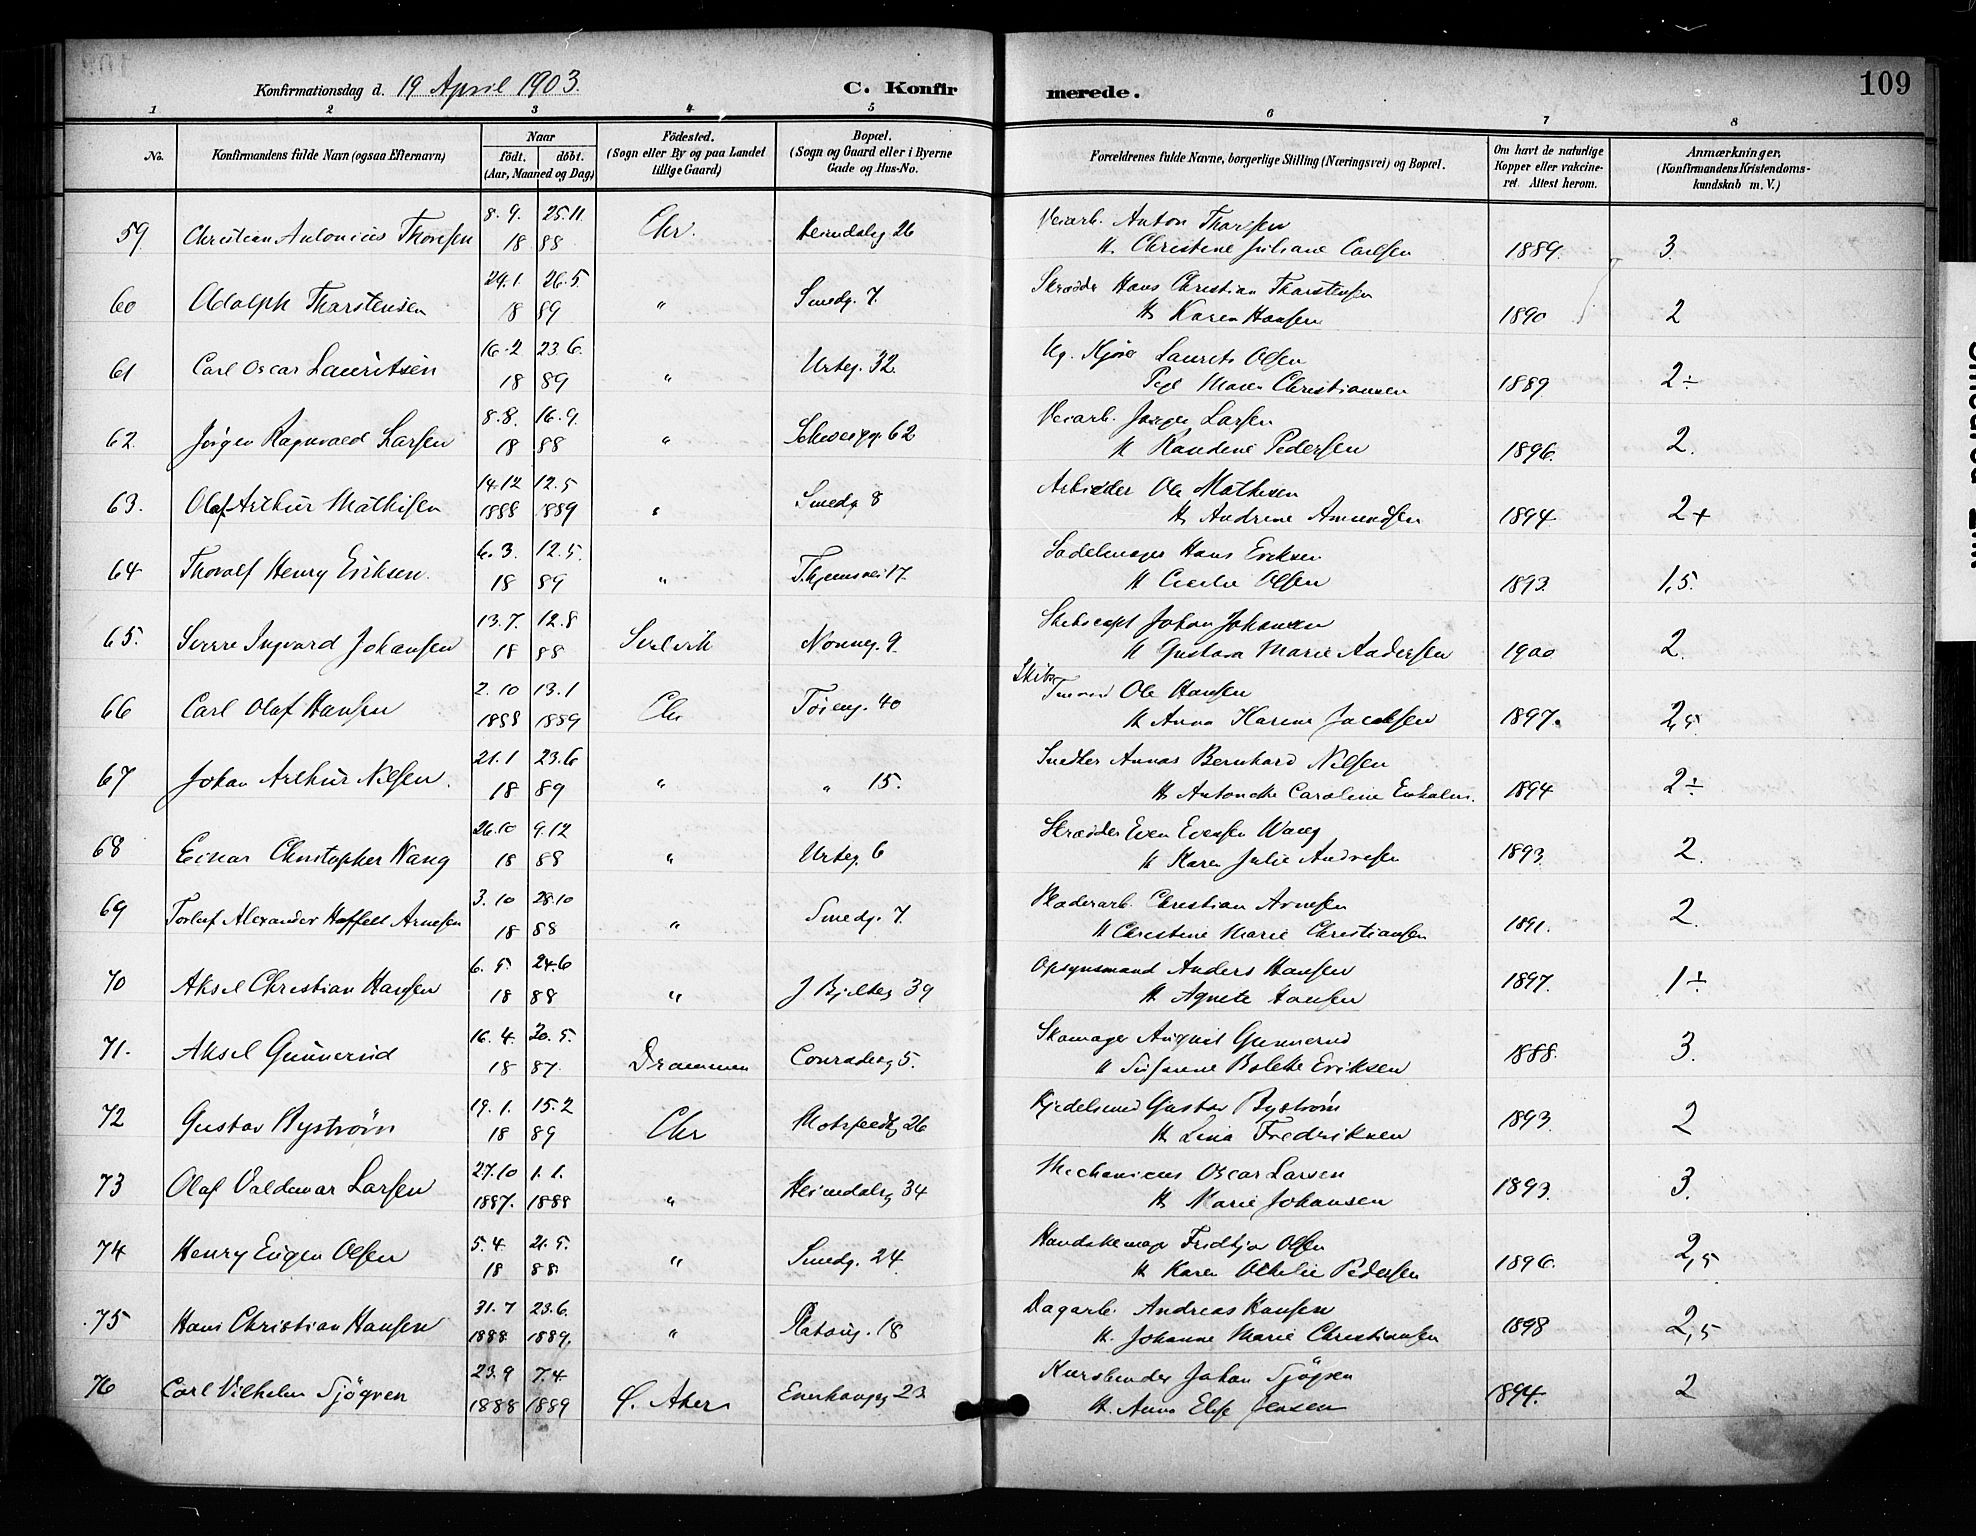 109
Konfirmationsdag d. 19 April 1903.
C. Konfirmerede.
1 2 3 4 5 6 7 8
No.
Konfirmandens fulde Navn (ogsaa Efternavn)
Naar
født. døbt.
(Aar, Maaned og Dag)
Fødested.
(Sogn eller By og paa Landet
tillige Gaard)
Bopæl.
(Sogn og Gaard eller i Byerne
Gade og Hus-No.
Forældrenes fulde Navne, borgerlige Stilling (Næringsvei) og Bopæl.
Om havt de naturlige
Kopper eller vakcine-
ret. Attest herom.
Anmærkninger.
(Konfirmandens Kristendoms-
kundskab m. V.)
8.9. 25.11 Veiarb. Anton Thorsen
59 Christian Antonius Thoresen 18 88 Chr. Heimdalsg 26 H. Christine Juliane Carlsen 1889. 3.
29.1. 26.5. Skrædder Hans Christian Thorstensen
60 Adolph Thorstensen 18 89 " Smedg. 7. H. Karen Hansen 1890 2
16.2 23.6. Ug. Kjører Laurets Olsen
61 Carl Oscar Lauritsen 18 89 " Urteg. 32. Pige Maren Christiansen 1889. 2÷
8.8. 16.9. Veiarb. Jørgen Larsen
62. Jörgen Ragnvald Larsen 18 88 " 62 H Randine Pedersen 1896. 2.
14.12 12.5 Arbeider Ole Mathisen
63. Olaf Arthur Mathisen 1888 889 " Smedg 8 H. Andrine Amundsen 1894 2+
6.3. 12.5. Sadelmager Hans Eriksen
64 Thoralf Henry Eriksen. 18 89 " 17. H Cecilie Olsen 1893. 1,5.
13.7. 12.8 Skibscapt Johan Johansen
65. Sverre Ingvard Johansen 18 88 Svelvik Nonneg. 9. H Gustava Marie Andersen 1900 2.
2.10 13.1 Skibs Tmmd Ole Hansen
66 Carl Olaf Hansen 1888 1889 Chr Töieng. 40 H Anna Karine Jacobsen 1897. 2,5
21.1 23.6 Snedker Bernhard Nilsen
67 Johan Arthur Nilsen. 18 89 " " 15. H Antonette Caroline 1894 2÷
26.10 9.12 Skrædder Even Evensen Wang
68 Einar Christopher Wang 18 88 " Urteg. 6 H Karen Julie Andresen 1893. 2.
3.10 28.10 Pladearb. Christian Arnesen
69 Torleif Alexander Arnesen 18 88 " Smedg. 7. H Christine Marie Christiansen 1891. 2.
6.5. 24.6 Opsynsmand Anders Hansen
70 Aksel Christian Hansen 18 88 " J Bjelkeg 39 H Agnete Hansen 1897. 1÷
16.4. 30.5. Skomager August Gunnerud
71. Aksel Gunnerud 18 87. Drammen Conradieg 5. H Susanne Bolette Eriksen 1888. 3.
19.1. 15.2 Kjedelsmed Gustav Byström
72 Gustav Byström 18 89 Chr Motzfeldtg 26 H. Lina Fredriksen 1893. 2
27.10 1.1. Mechanicus Oscar Larsen
73 Olaf Valdemar Larsen 1887. 1888 " Heimdalsg 34 H Marie Johansen 1893. 3.
5.4. 21.5. Handskemag Fridtjo Olsen
74 Henry Eugen Olsen 18 88 " Smedg. 24 H Karen Othelie Pedersen 1896. 2,5
31.7 23.6. Dagarb. Andreas Hansen
75 Hans Christian Hansen 1888. 1889. " Platoug. 18 H. Johanne Marie Christiansen 1898 2,5
23.9 7.4 Kurvbinder Johan Sjögren
76 Carl Vilhelm Sjögren 1888 1889 Ø. Aker Enerhaugg 23 H. Anna Elise Jensen 1894. 2